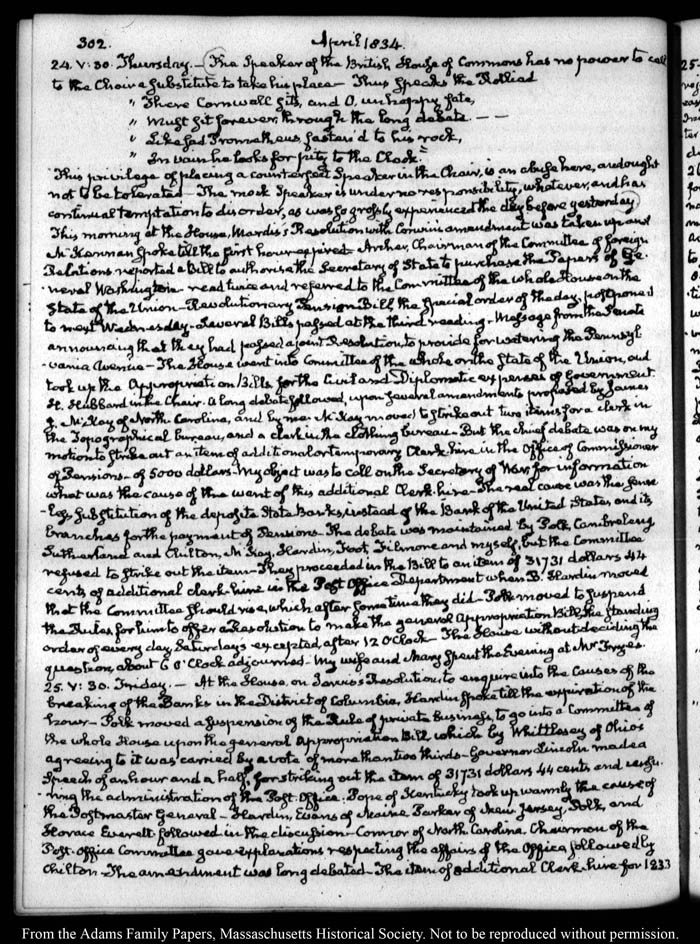 302. April 1834.
24. V: 30. Thursday. — The Speaker of the British House of Commons has no power to call
to the Chair a substitute to take his place — Thus speaks the Rolliad
" There Cornwall sits, and O, unhappy fate,
" Must sit forever, through the long debate. — —
" Like sad Prometheus, fasten'd to his rock,
" In vain he looks for pity to the Clock."
This privilege of placing a counterfeit Speaker in the Chair, is an abuse here, and ought
not to be tolerated — The mock Speaker is under no responsibility, whatever, and has
continual temptation to disorder, as was so grossly experienced the day before yesterday
This morning at the House, Mardis's Resolution with Corwin's amendment was taken up and
McKennan spoke till the first hour expired — Archer, Chairman of the Committee of foreign
Relations reported a Bill to authorise the Secretary of State to purchase the Papers of Ge-
-neral Washington — read twice and referred to the Committee of the whole House on the
State of the Union — Revolutionary Pension Bill, the special order of the day, postponed
to next Wednesday — Several Bills passed at the third reading — Message from the Senate
announcing that they had passed a joint Resolution, to provide for watering the Pennsyl-
-vania Avenue — The House went into Committee of the whole on the State of the Union, and
took up the Appropriation Bills for the Civil and Diplomatic expenses of Government.
H. Hubbard in the Chair. A long debate followed, upon several amendments proposed by James
J. McKay of North Carolina, and by me. McKay moved to strike out two items for a clerk in
the Topographical bureau, and a clerk in the clothing bureau — But the chief debate was on my
motion to strike out an item of additional or temporary Clerk hire in the Office of Commissioner
of Pensions — of 5000 dollars — My object was to call on the Secretary of War, for information
what was the cause of the want of this additional Clerk-hire — The real cause was the sense-
-less substitution of the deposite State Banks, instead of the Bank of the United States, and its
branches for the payment of Pensions — The debate was maintained by Polk, Cambreleng
Sutherland and Chilton, McKay, Hardin, Foot, Filmore and myself, but the Committee
refused to strike out the item — They proceeded in the Bill to an item of 31731 dollars 44
cents of additional clerk-hire in the Post Office Department when B. Hardin moved
that the Committee should rise, which after some time they did. Polk moved to suspend
the Rules, for him to offer a Resolution to make the general Appropriation Bill, the standing
order of every day, Saturdays excepted, after 12 O'Clock — The House without deciding the
question, about 6 O'Clock adjourned. My wife and Mary spent the Evening at Mr Frye's.
25. V: 30. Friday. — At the House, on Jarvis's Resolution, to enquire into the Causes of the
breaking of the Banks in the District of Columbia, Hardin spoke till the expiration of the
hour — Polk moved a suspension of the Rule of private business, to go into a Committee of
the whole House upon the general Appropriation Bill, which by Whittlesey of Ohio's
agreeing to it was carried by a vote of more than two thirds — Governor Lincoln made a
Speech of an hour and a half, for striking out the item of 31731 dollars 44 cents and censu-
-ring the administration of the Post-Office. Pope of Kentucky took up warmly the cause of
the Postmaster General — Hardin, Evans of Maine, Parker of New Jersey, Polk, and
Horace Everett followed in the discussion — Connor of North Carolina, Chairman of the
Post-Office Committee gave explanations respecting the affairs of the Office, followed by
Chilton — The amendment was long debated — The item of additional Clerk-hire for 1833
From the Adams Family Papers, Massachusetts Historical Society. Not to be reproduced without permission.